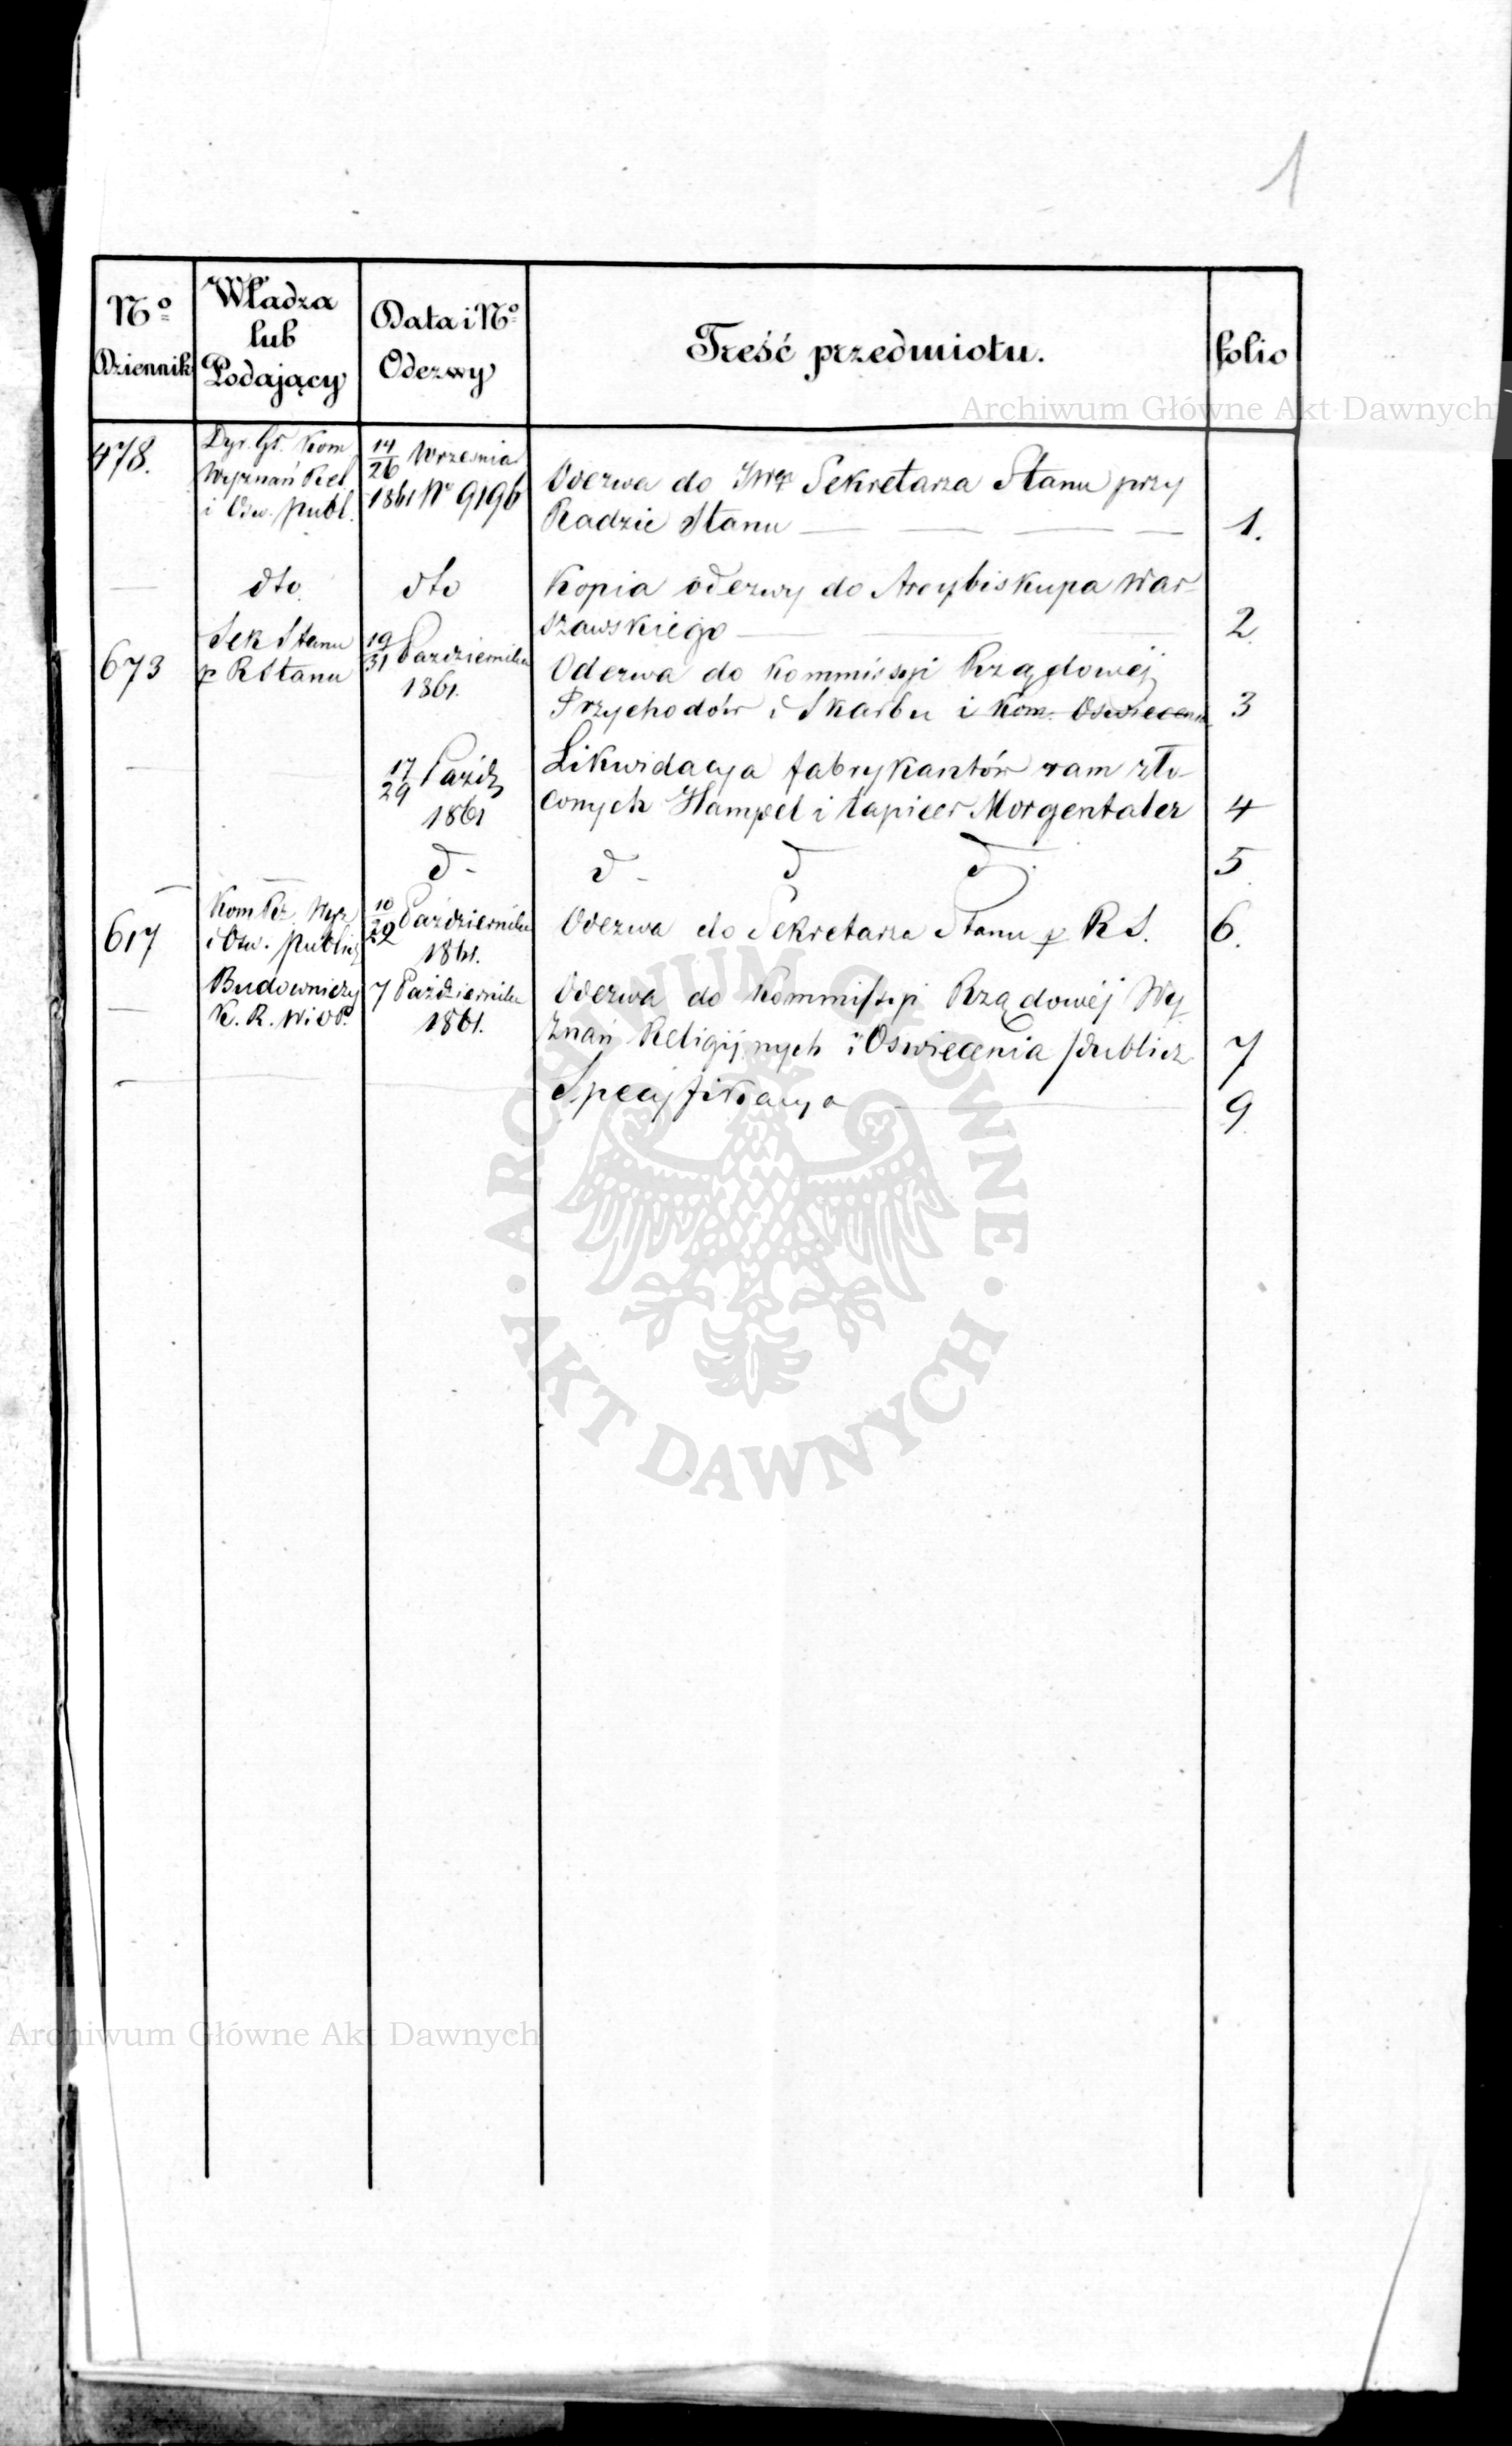 1
Nº Dziennik
Władza lub Podający
Data i Nº Odezwy
Treść przedmiotu.
folio
Archiwum Główne Akt Dawnych
478.
Dyr. Gł. Kom
Wyznań Rel.
i Ośw. Publ.
14/26 Września
1861 Nº 9196
Odezwa do JWgo Sekretarza Stanu przy
Radzie Stanu
1.
dto
dto
Kopia odezwy do Arcybiskupa War-
szawskiego
2
673
Sek Stanu
p RStanu
19/31 Października
1861.
Oderwa do Kommissyi Rządowéj
Przychodów i Skarbu i Kom. Oswiecenia
3
17/29 Paźdz
1861
Likwidacya fabrykantów ram zło-
conych Hampel i tapicer Morgentaler
4
d-
d-
d
d.
5
617
Kom Rz. Wyz
i Ośw. Publicz
10/22 Października
1861.
Odezwa do Sekretarza Stanu p R S.
6.
Budowniczy
K. R. W i O P.
7 Października
1861.
Odezwa do Kommissyi Rządowéj Wy
znań Religijnych i Oswiecenia Publicz
7
Specyfikacya
9
ARCHIWUM GŁÓWNE AKT DAWNYCH
Archiwum Główne Akt Dawnych